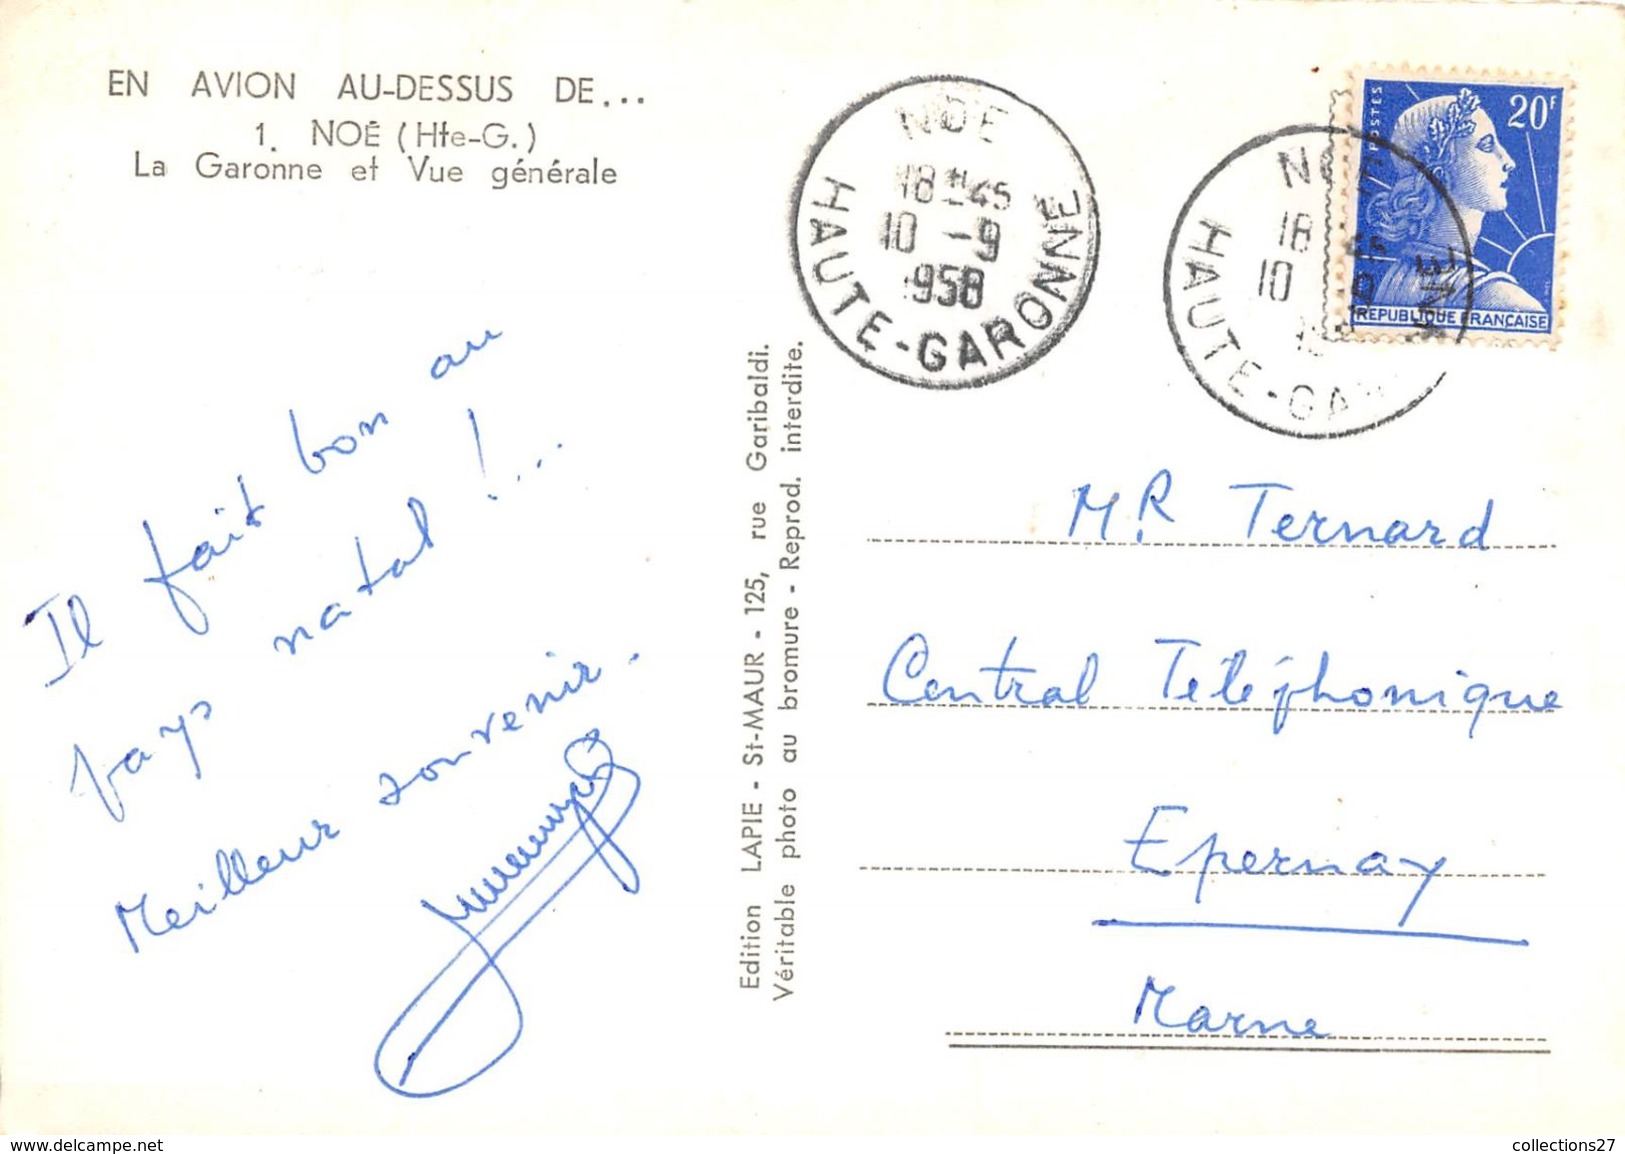 EN AVION AU-DESSUS DE...
1. NOÉ (Hte-G.)
La Garonne et Vue générale
Il fait bon au
pays natal !...
Meilleur souvenir.
Edition LAPIE - St-MAUR - 125, rue Garibaldi.
Véritable photo au bromure - Reprod. interdite.
NOE
18H45
10 -9
1958
HAUTE-GARONNE
NOE
18 45
10 -9
HAUTE-GARONNE
POSTES
20F
REPUBLIQUE FRANÇAISE
M.R Ternard
Central Téléphonique
Epernay
Marne
www.delcampe.net
collections27